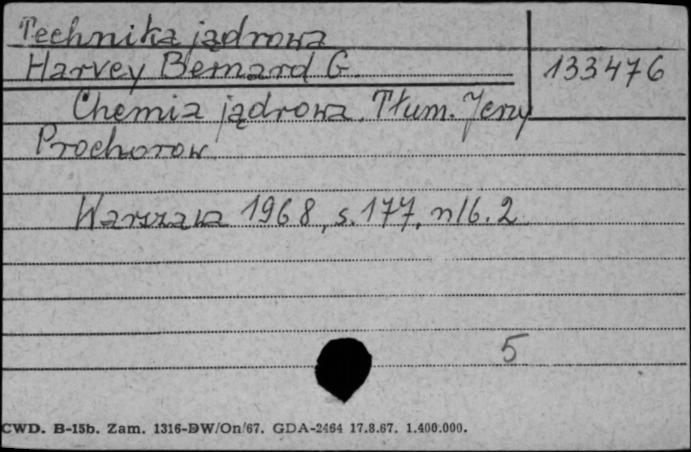 Technika jądrowa
Harvey Bernard G.
133476
Chemia jądrowa. Tłum. Jerzy
Prochorow.
Warszawa 1968, s. 177, nlb. 2
5
CWD. B-15b. Zam. 1316-DW/On/67. GDA-2464 17.8.67. 1.400.000.